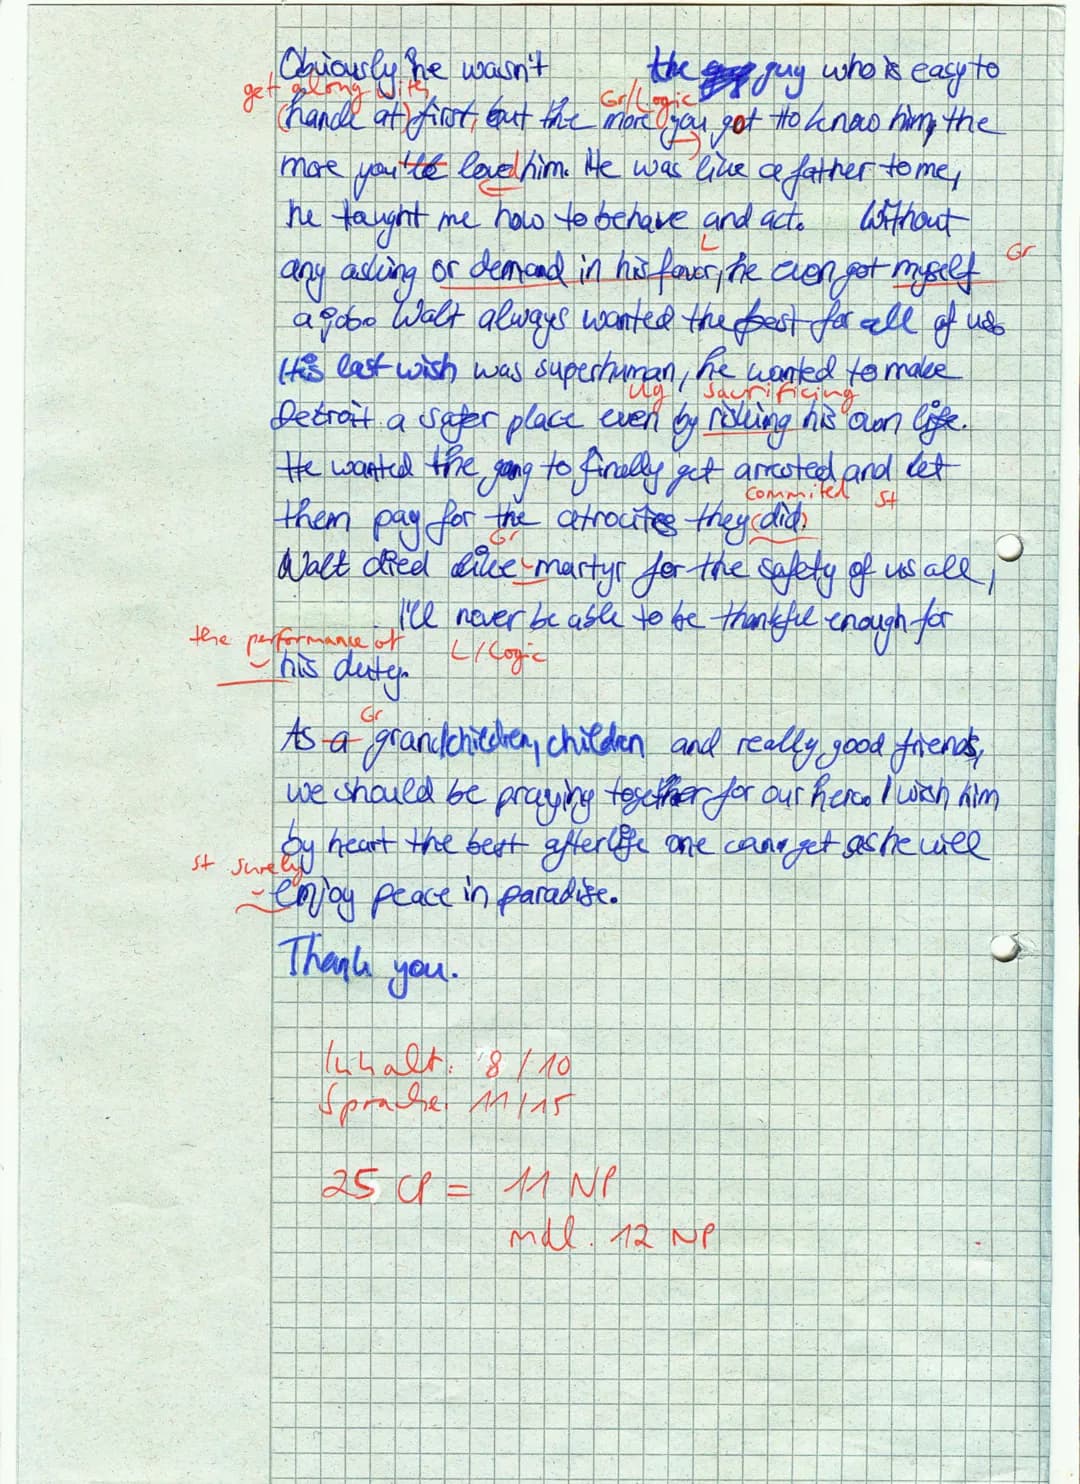 Obviously he wasn't the guy who is easy to
get along with
Gr/Logic
(handle at) first, but the more you got to know him, the
more you loved him. He was like a father to me,
he taught me how to behave and act. Without
L
Gr
any asking or demand in his favor, he even got myself
a job. Walt always wanted the best for all of us.
His last wish was superhuman, he wanted to make
Ug sacrificing
Detroit a safer place even by risking his own life.
He wanted the gang to finally get arrested and let
commited St
them pay for the atrocites they (did)
Gr
Walt died like martyr for the safety of us all,
I'll never be able to be thankful enough for
the performance of
L/Logic
his duty.
Gr
As a grandchildren, children and really good friends,
we should be praying together for our hero. I wish him
by heart the best afterlife one can get as he will
St surely
enjoy peace in paradise.
Thank you.
Inhalt: 8/10
Sprache: 11/15
25 CP = 11 NP
mdl. 12 NP